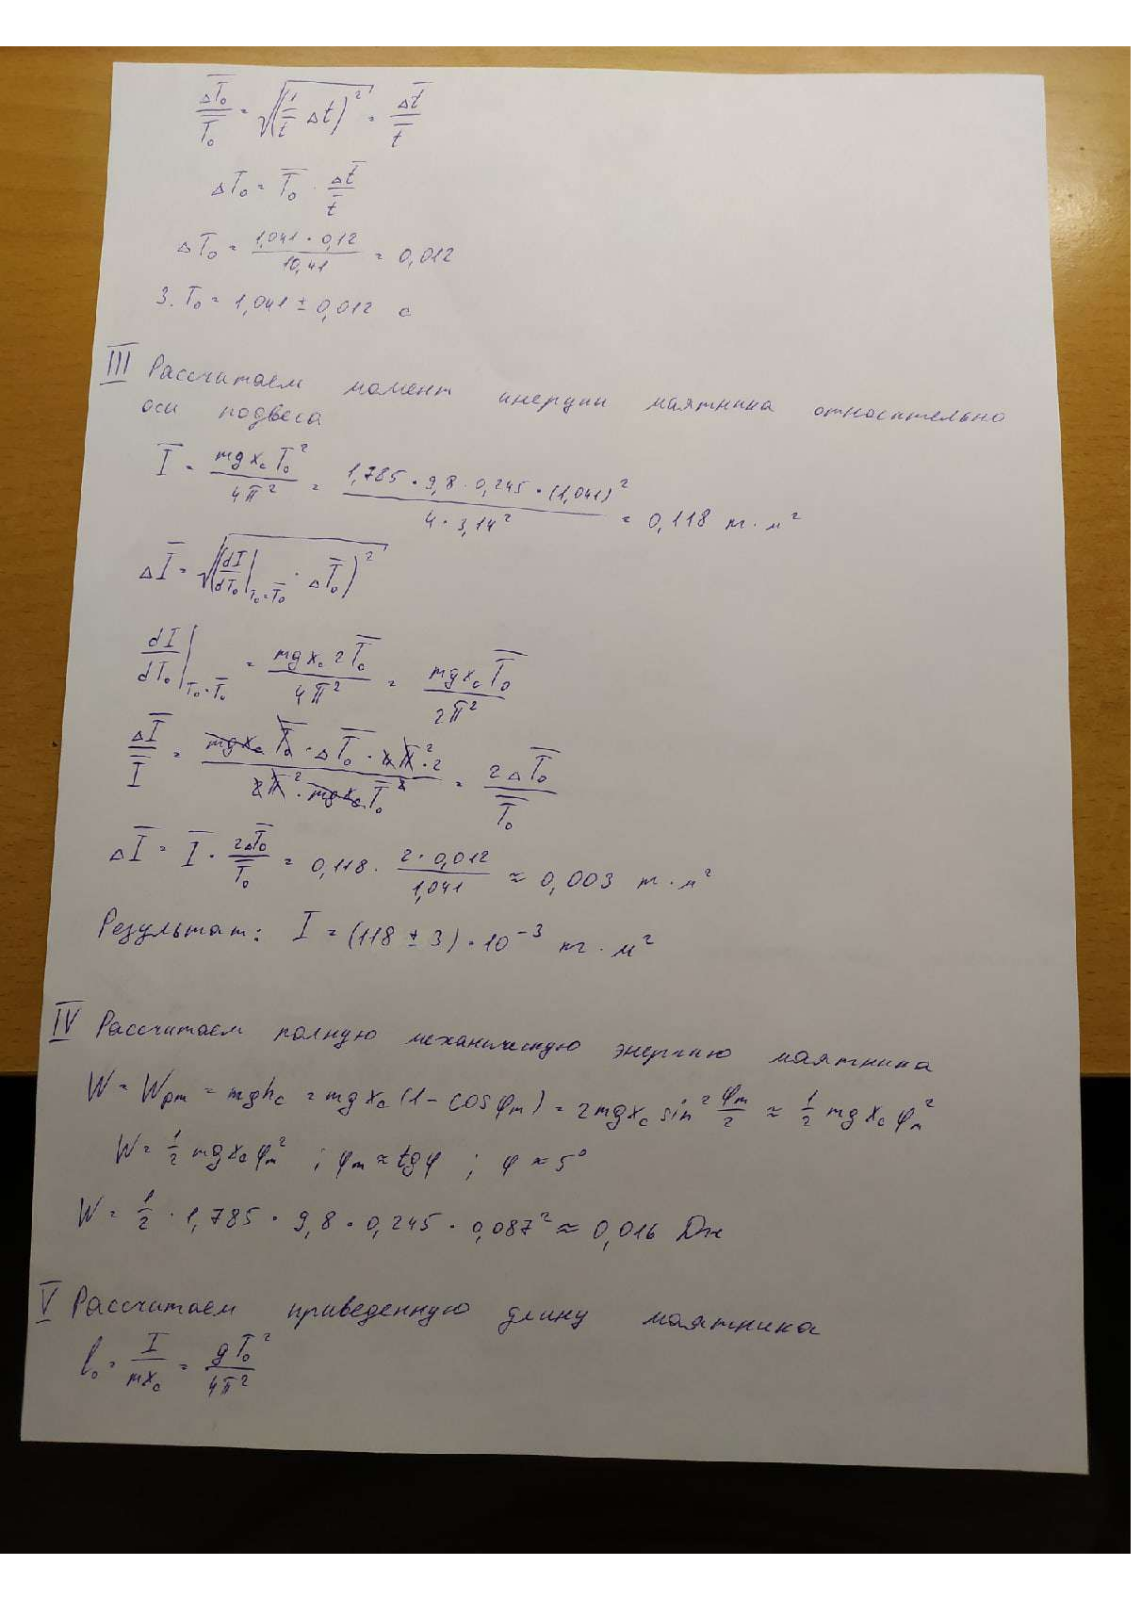 ΔT̅₀/T̅₀ = √((1/t Δt)²) = Δt̅/t̅
ΔT̅₀ = T̅₀ · Δt̅/t̅
ΔT̅₀ = 1,041 · 0,12 / 10,41 = 0,012
3. T₀ = 1,041 ± 0,012 с
III Рассчитаем момент инерции маятника относительно
оси подвеса
I̅ = mgx_c T̅₀² / 4π² = 1,785 · 9,8 · 0,245 · (1,041)² / 4 · 3,14² = 0,118 кг · м²
ΔI̅ = √((dI/dT₀|_{T₀=T̅₀} · ΔT̅₀)²)
dI/dT₀|_{T₀=T̅₀} = mgx_c 2T̅₀ / 4π² = mgx_c T̅₀ / 2π²
ΔI̅/I̅ = mgx_c T̅₀ · ΔT̅₀ · 2π² · 2 / 2π² · mgx_c T̅₀² = 2ΔT̅₀ / T̅₀
ΔI̅ = I̅ · 2ΔT̅₀/T̅₀ = 0,118 · 2 · 0,012 / 1,041 ≈ 0,003 кг · м²
Результат: I = (118 ± 3) · 10⁻³ кг · м²
IV Рассчитаем полную механическую энергию маятника
W = W_pm = mgh_c = mgx_c (1 - cos φ_m) = 2mgx_c sin² φ_m/2 ≈ 1/2 mgx_c φ_m²
W = 1/2 mgx_c φ_m² ; φ_m ≈ tg φ ; φ ≈ 5°
W = 1/2 · 1,785 · 9,8 · 0,245 · 0,087² ≈ 0,016 Дж
V Рассчитаем приведенную длину маятника
l₀ = I / mx_c = gT₀² / 4π²